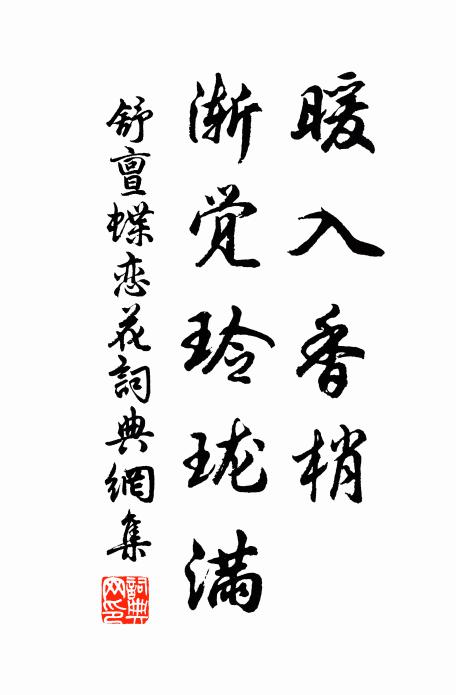 暖入香梢
渐觉玲珑满
舒亶蝶恋花詞典網集
詞典
网印